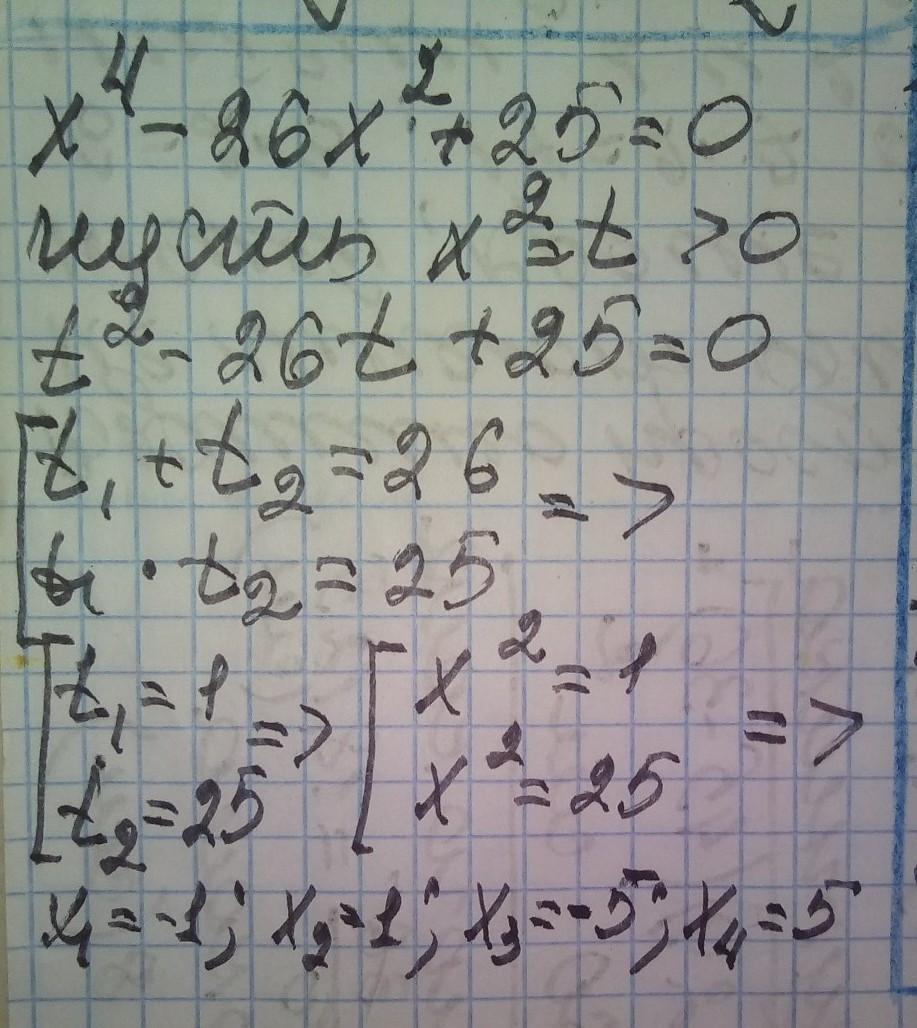 x⁴ - 26x² + 25 = 0
пусть x² = t > 0
t² - 26t + 25 = 0
[t₁ + t₂ = 26
t₁ · t₂ = 25 =>
[t₁ = 1 => [x² = 1 =>
t₂ = 25 x² = 25
x₁ = -1; x₂ = 1; x₃ = -5; x₄ = 5